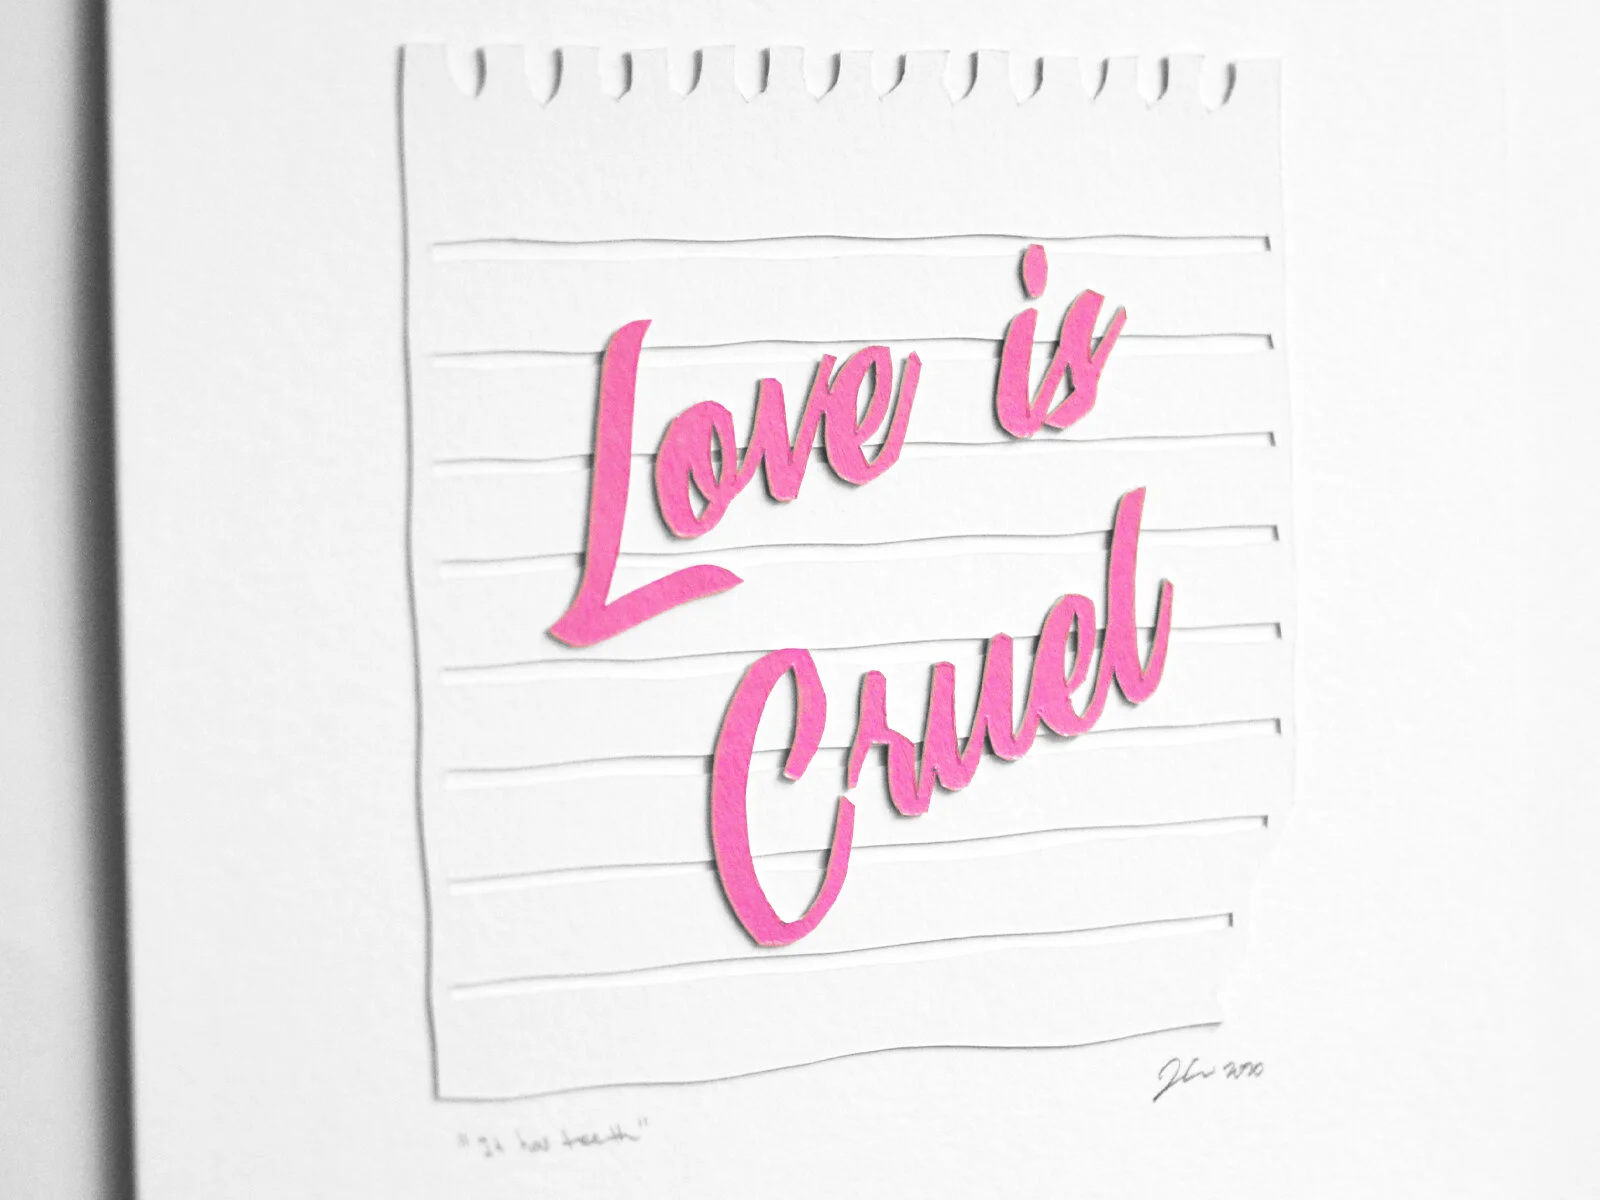 Love is
Cruel
2020
"It has teeth"